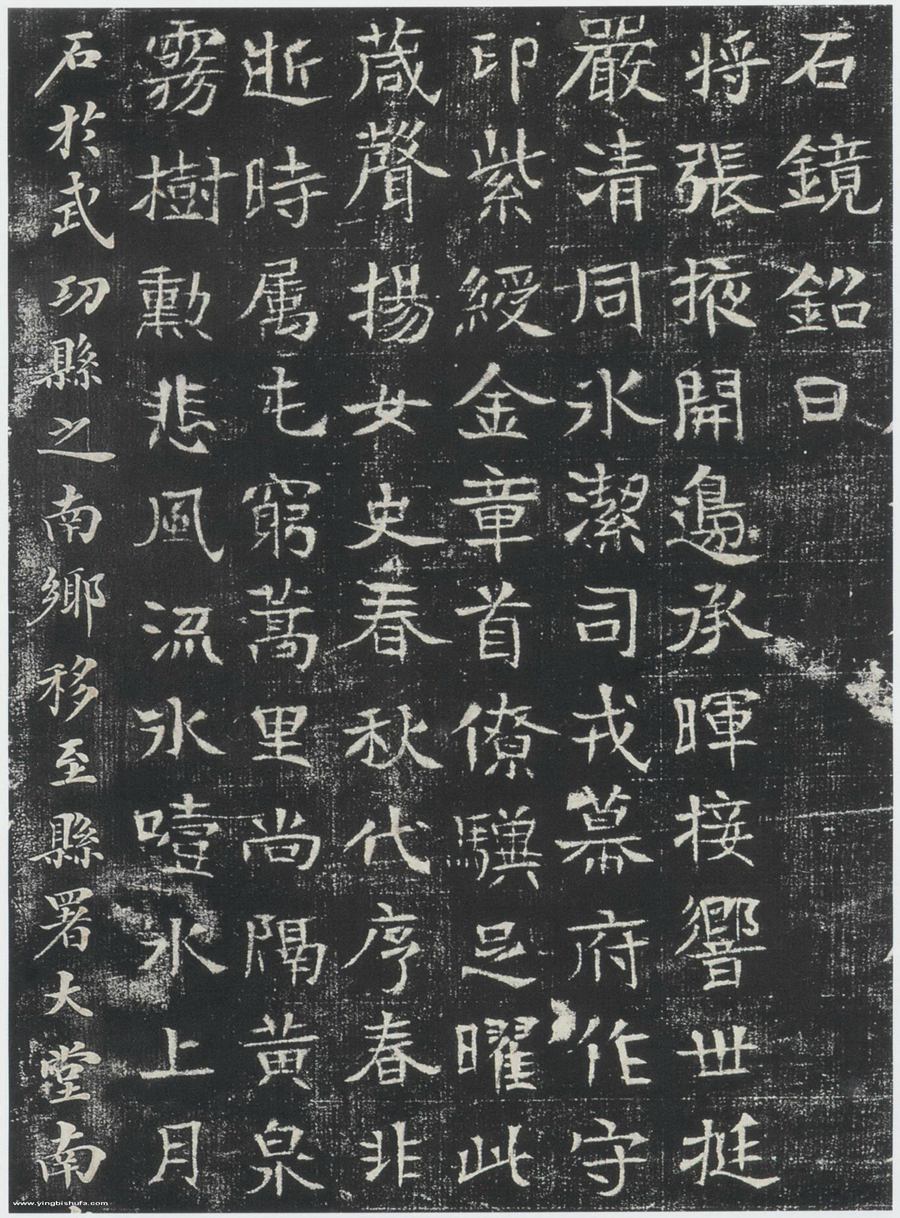 石鏡銘曰
将張掖開邊承暉接響世挺
嚴清同氷潔司戎幕府作守
印紫綬金章首僚驥足曜此
葴聲揚女史春秋代序春非
逝時属屯窮蒿里尚隔黃泉
霧樹勳悲風流氷噎水上月
石於武功縣之南鄉移至縣署大堂南
www.yingbishufa.com